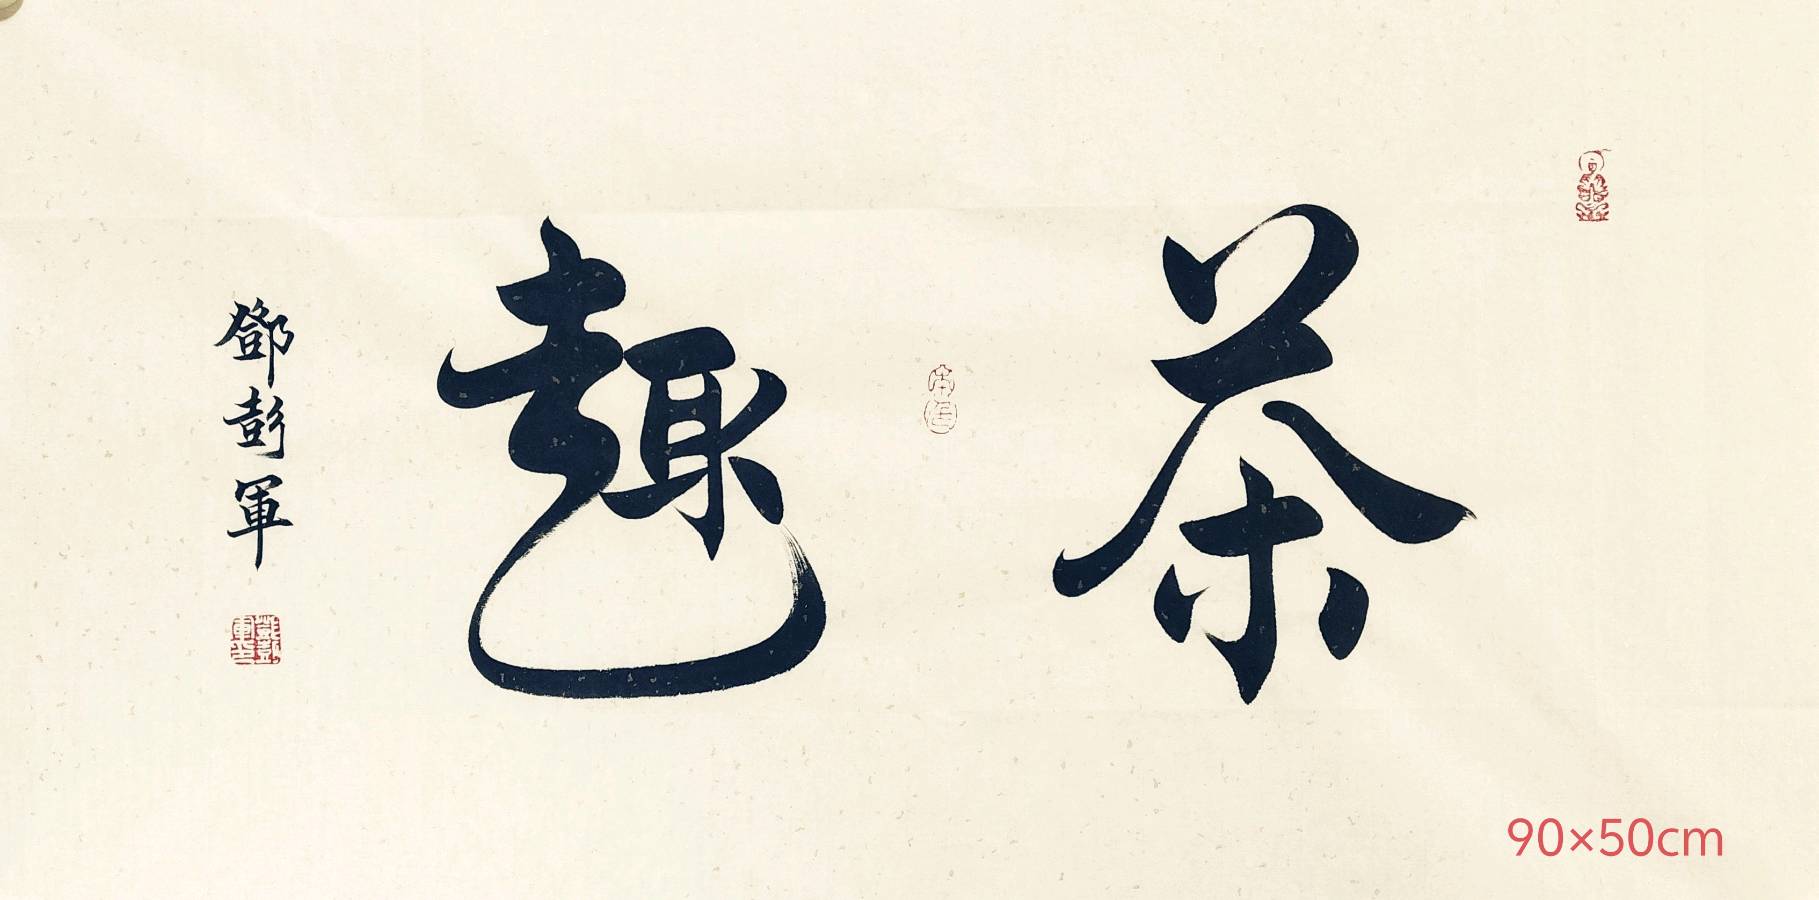 茶趣
鄧彭軍
90×50cm